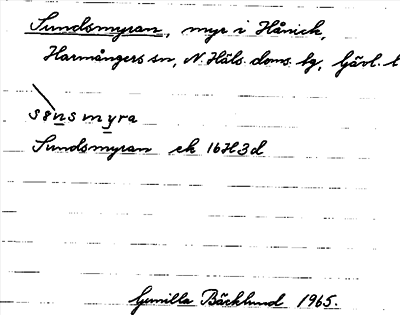 Sundsmyran, myr i Hånick,
Harmångers sn, N. Häls. doms. bg, Gävl. l
sønsmyra
Sundsmyran ek 16H3d
Gunilla Bäcklund 1965.